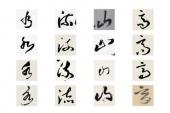 高山流水
高山流水
高山流水
高山流水